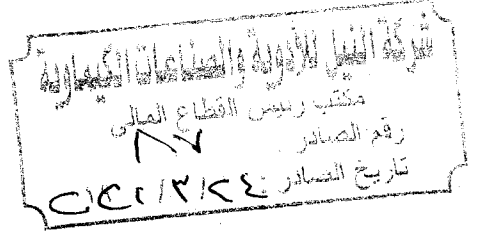 شركة النيل للأدوية والصناعات الكيماوية
مكتب رئيس القطاع المالى
رقم الصادر ٨٧
تاريخ الصادر : ٢٠٢١/٣/٢٤